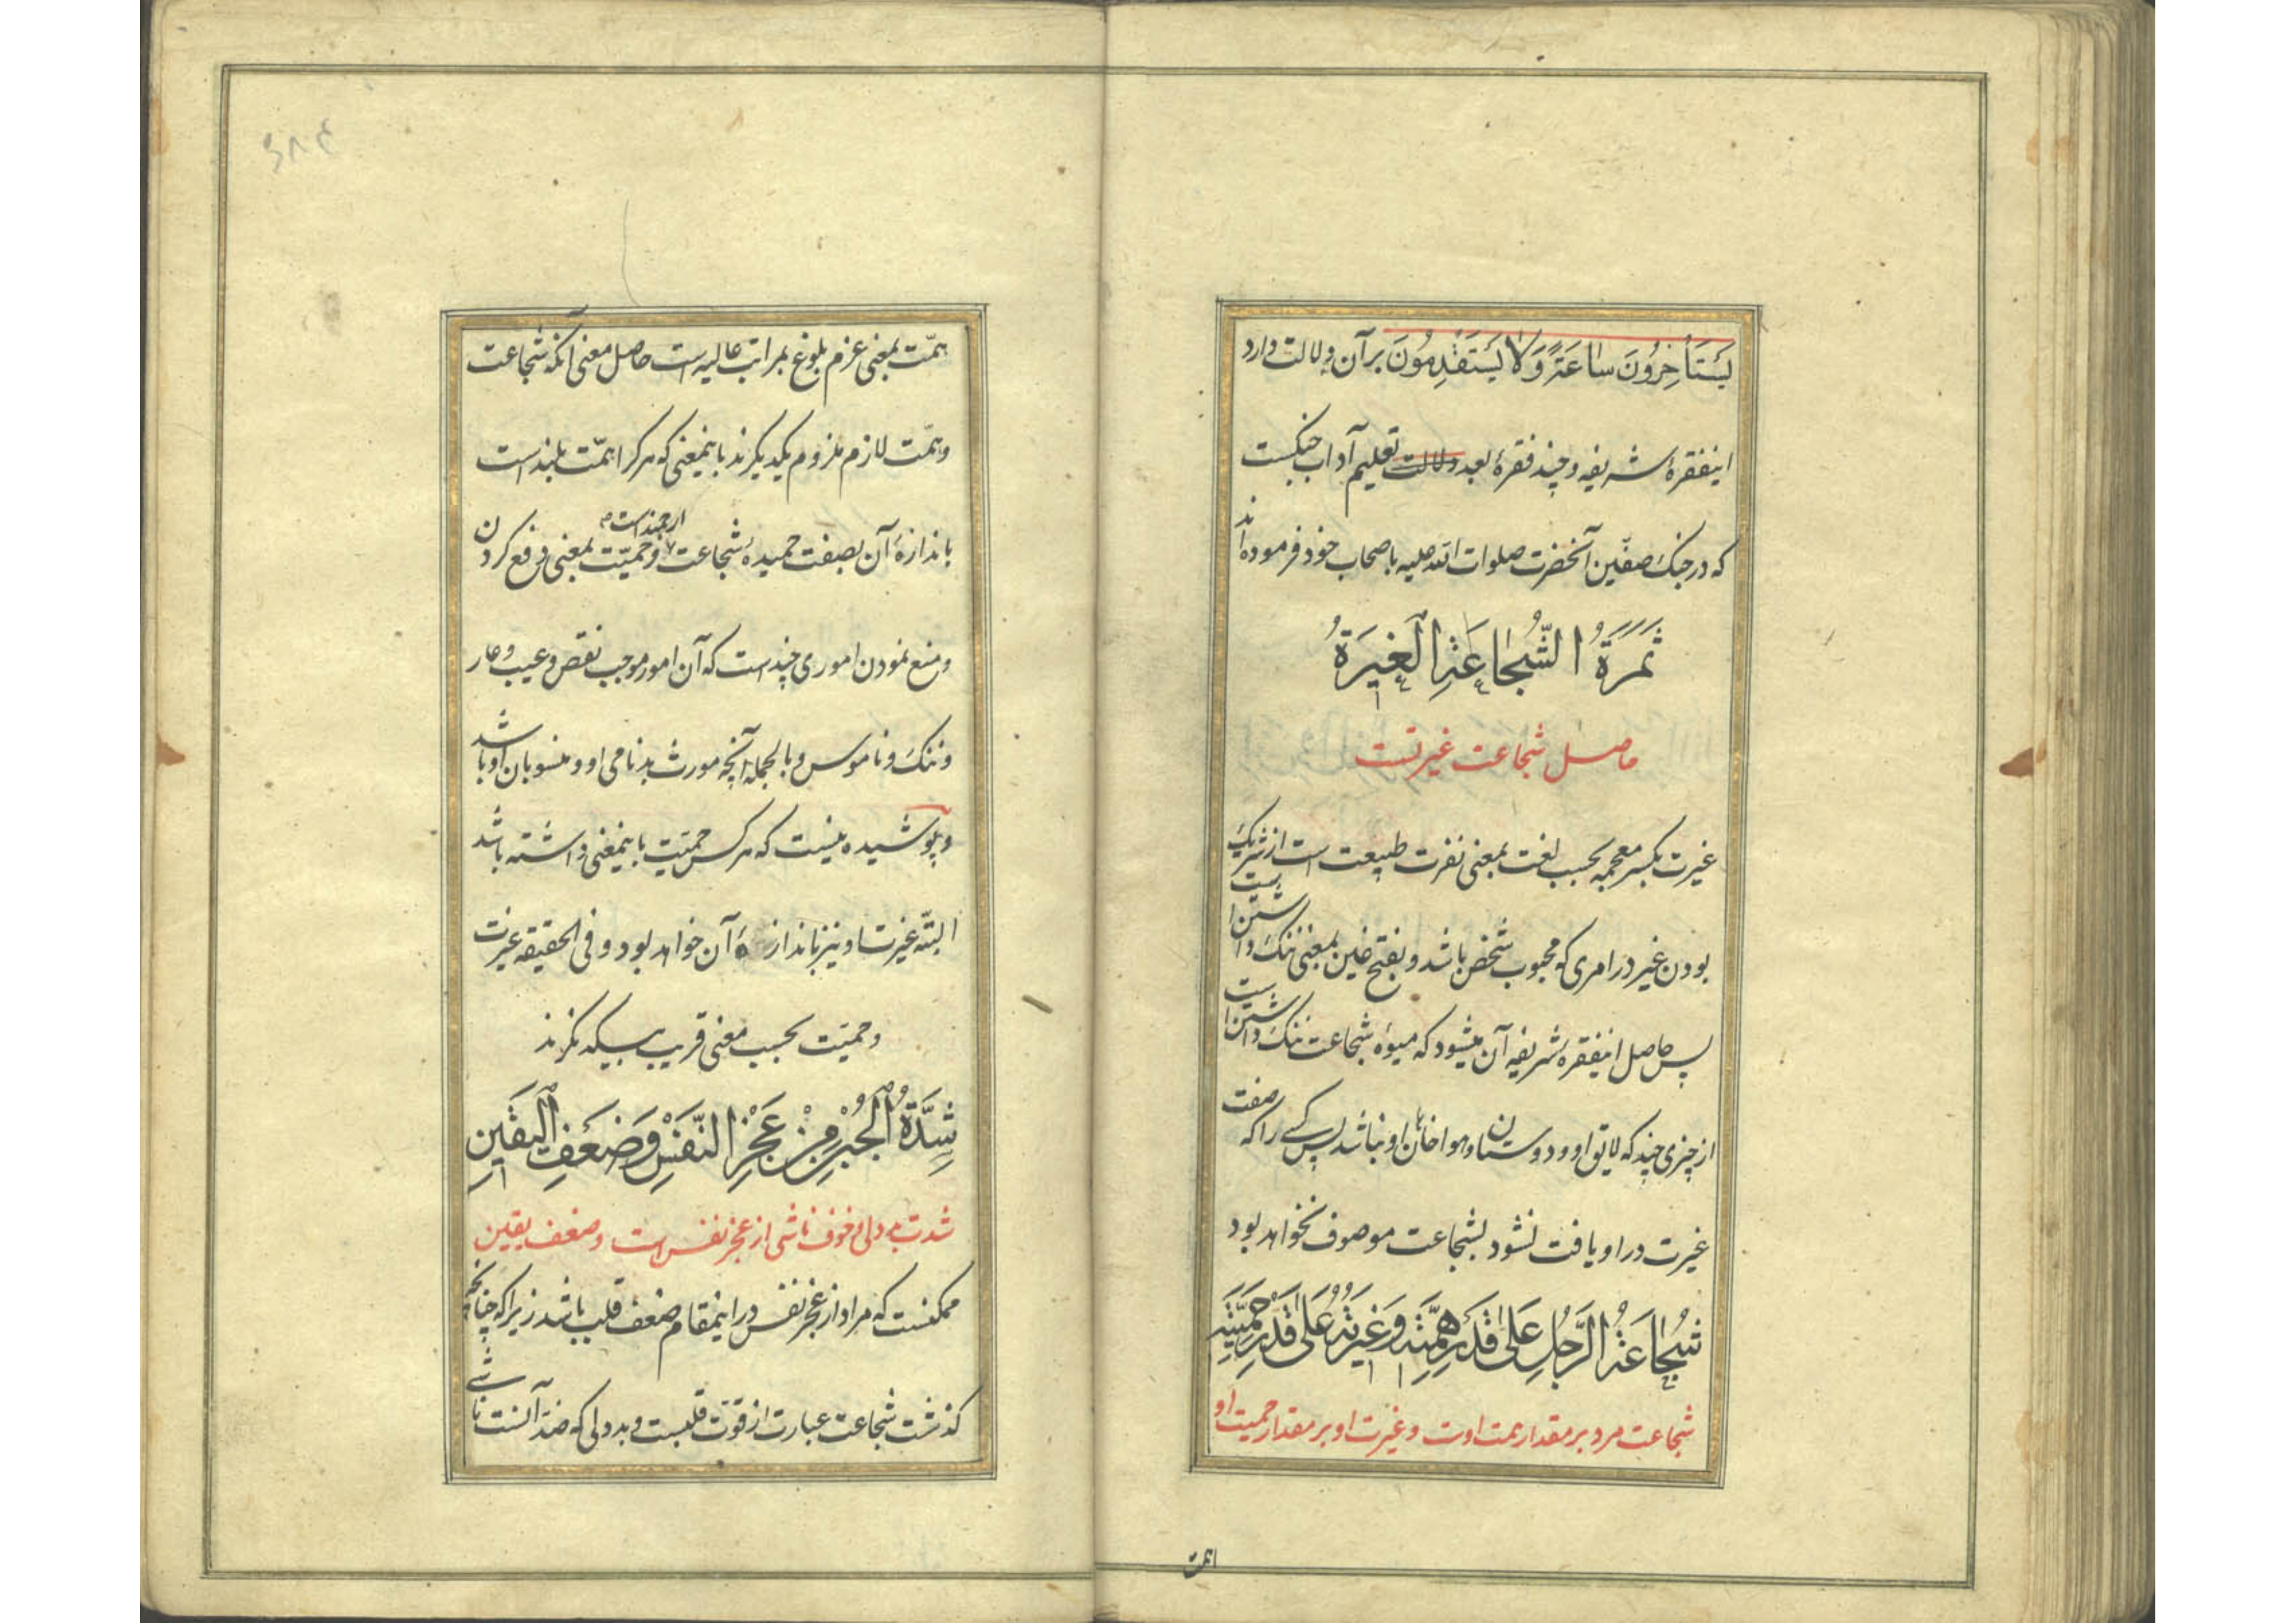 یَسْتَأْخِرُونَ سٰاعَةً وَلاٰ یَسْتَقْدِمُونَ برآن دلالت دارد
اینفقرهٔ شریفه و چند فقرهٔ بعد دلالت تعلیم آداب جنگست
که در جنک صفّین آنحضرت صلوات الله علیه باصحاب خود فرموده‌اند
ثَمَرَةُ الشُّجٰاعَةِ الْغَیرَةُ
حاصل شجاعت غیرتست
غیرت بکسر معجمه بحسب لغت بمعنی نفرت طبیعت است از شریک
بودن غیر در امری که محبوب شخص باشد و بفتح غین بمعنی ننک داشتن است
پس حاصل اینفقره شریفه آن میشود که میوهٔ شجاعت ننک داشتن است
از چیزی چند که لایق او و دوستان و هواخاهان او نباشد پس کسے را که صفت
غیرت در او یافت نشود بشجاعت موصوف نخواهد بود
شُجٰاعَةُ الرَّجُلِ عَلیٰ قَدَرِ هِمَّتِهِ وَغَیرَتُهُ عَلیٰ قَدْرِ حَمِیَّتِهِ
شجاعت مرد بر مقدار همت اوست و غیرت او بر مقدار حمیت او
همّت
همّت بمعنی عزم بلوغ بمراتب عالیه است حاصل معنی آنکه شجاعت
و همّت لازم ملزوم یکدیکرند باینمعنی که هر کرا همّت بلند است
باندازهٔ آن بصفت حمیده شجاعت ارجمند است و حمیّت بمعنی دفع کردن
و منع نمودن اموری چند است که آن امور موجب نقص و عیب و عار
و ننک و ناموس و بالجمله آنچه مورث بدنامی او و منسوبان او باشد
و پوشیده نیست که هر کس حمیّت باینمعنی داشته باشد
البتّه غیرت او نیز باندازهٔ آن خواهد بود و فی الحقیقه غیرت
و حمیّت بحسب معنی قریب بیکدیکرند
شِدَّةُ الْجُبْنِ مِنْ عَجْزِ النَّفْسِ وَضَعَفِ الْیَقینِ
شدت بد دلی و خوف ناشی از عجز نفس است و ضعف یقین
ممکنست که مراد از عجز نفس در اینمقام ضعف قلب باشد زیرا که چنانچه
کذشت شجاعت عبارت از قوّت قلبست و بد دلی که ضد آنست ناشے